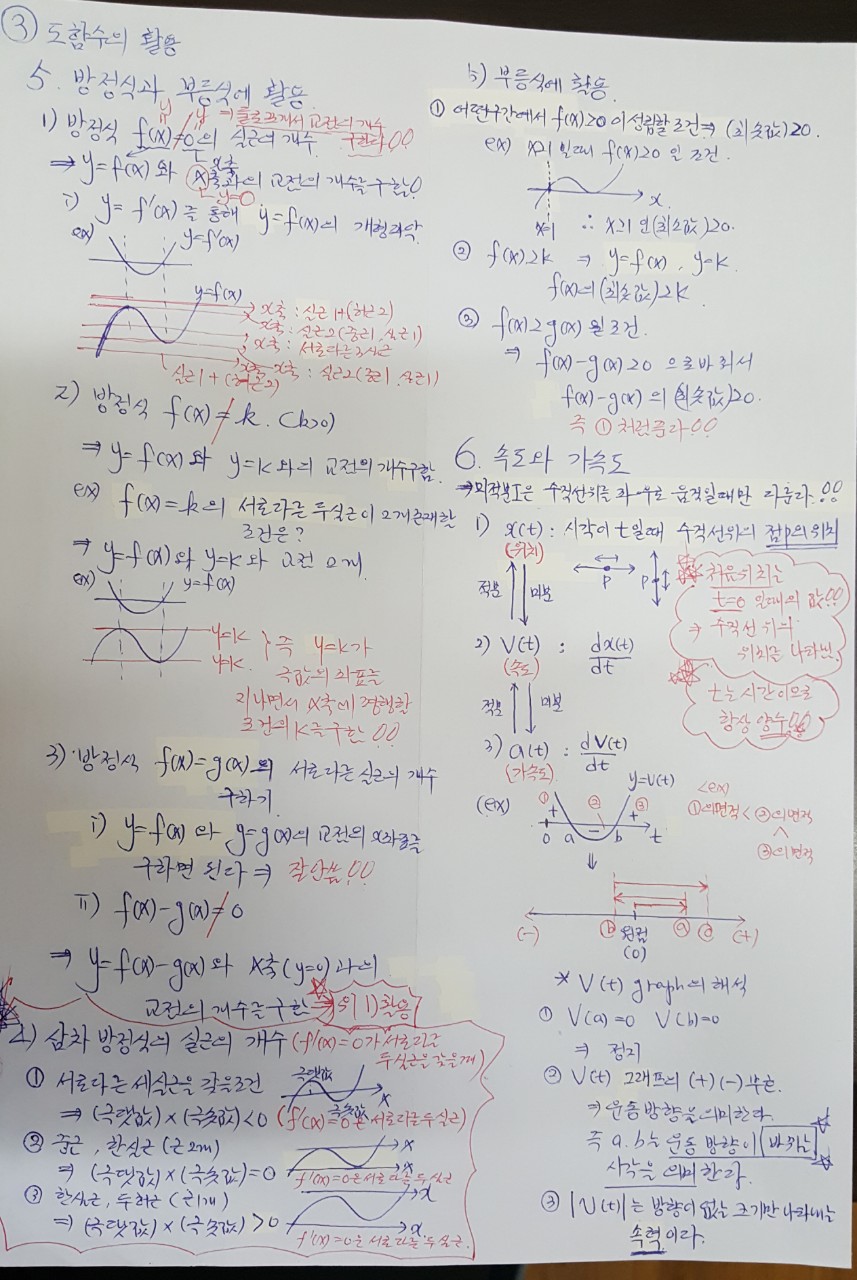 ③ 도함수의 활용
5. 방정식과 부등식에 활용
y y ⇒ 둘로쪼개서 교점의 개수
1) 방정식 f(x)=0의 실근의 개수 구한다!!
⇒ y=f(x)와 x축과의 교점의 개수를 구함!
x축
y=0
i) y=f'(x)를 통해 y=f(x)의 개형파악
ex) y=f'(x)
y=f(x)
x축 : 실근1+(허근2)
x축 : 실근2(중근1, 실근1)
x축 : 서로다른3실근
x축 : 실근2(중근1, 실근1)
실근1+(허근2)
2) 방정식 f(x)=k. (k>0)
⇒ y=f(x)와 y=k와의 교점의 개수구함.
ex) f(x)=k의 서로다른 두실근이 2개존재할
조건은?
⇒ y=f(x)와 y=k와 교점 2개.
ex) y=f(x)
y=k
y=k.
즉 y=k가
극값의 좌표를
지나면서 x축에 평행할
조건의 k를구함!!
3) 방정식 f(x)=g(x)의 서로다른 실근의 개수
구하기
i) y=f(x)와 y=g(x)의 교점의 x좌표를
구하면 된다 ⇒ 잘안씀!!
ii) f(x)-g(x)=0
⇒ y=f(x)-g(x)와 x축(y=0)과의
교점의 개수를 구함 ⇒ 위 1)활용
4) 삼차 방정식의 실근의 개수 (f'(x)=0가 서로다른
두실근을 갖을때)
① 서로다른 세실근을 갖을조건 극댓값 x
⇒ (극댓값)×(극솟값)<0 극솟값 (f'(x)=0은 서로다른두실근)
② 중근, 한실근 (근2개) x
⇒ (극댓값)×(극솟값)=0 x f'(x)=0은 서로다른 두실근
③ 한실근, 두허근 (근1개) x
⇒ (극댓값)×(극솟값)>0 x
f'(x)=0은 서로다른 두실근.
b) 부등식에 활용.
① 어떤구간에서 f(x)≥0이성립할조건⇒ (최솟값)≥0.
ex) x≥1 일때 f(x)≥0 일 조건.
x.
x=1 ∴ x≥1 인(최소값)≥0.
② f(x)≥k ⇒ y=f(x), y=k.
f(x)의(최솟값)≥k.
③ f(x)≥g(x) 일조건.
⇒ f(x)-g(x)≥0 으로바꿔서
f(x)-g(x)의 (최솟값)≥0.
즉 ① 처럼풀라!!
6. 속도와 가속도
⇒미적분I은 수직선위를 좌우로 움직일때만 다룬다.!!
1) x(t) : 시각이 t일때 수직선위의 점p의 위치
(위치)
적분 미분
P P
처음위치는
t=0 일때의 값!!
⇒ 수직선 위의
위치를 나타냄.
2) V(t) : dx(t)/dt
(속도)
적분 미분
t는시간이므로
항상 양수!!
3) a(t) : dV(t)/dt
(가속도)
(ex) ① + ② - ③ + y=v(t)
0 a b t
<ex)
①의면적 < ②의면적
^
③의면적
(-) ⓑ 원점 ⓐ ⓓ (+)
(0)
* V(t) graph의 해석
① V(a)=0 V(b)=0
⇒ 정지
② V(t) 그래프의 (+)(-) 부호.
⇒운동방향을의미한다.
즉 a.b는 운동 방향이 바뀌는
시각을 의미한다.
③ |V(t)|는 방향이 없는 크기만 나타내는
속력이다.